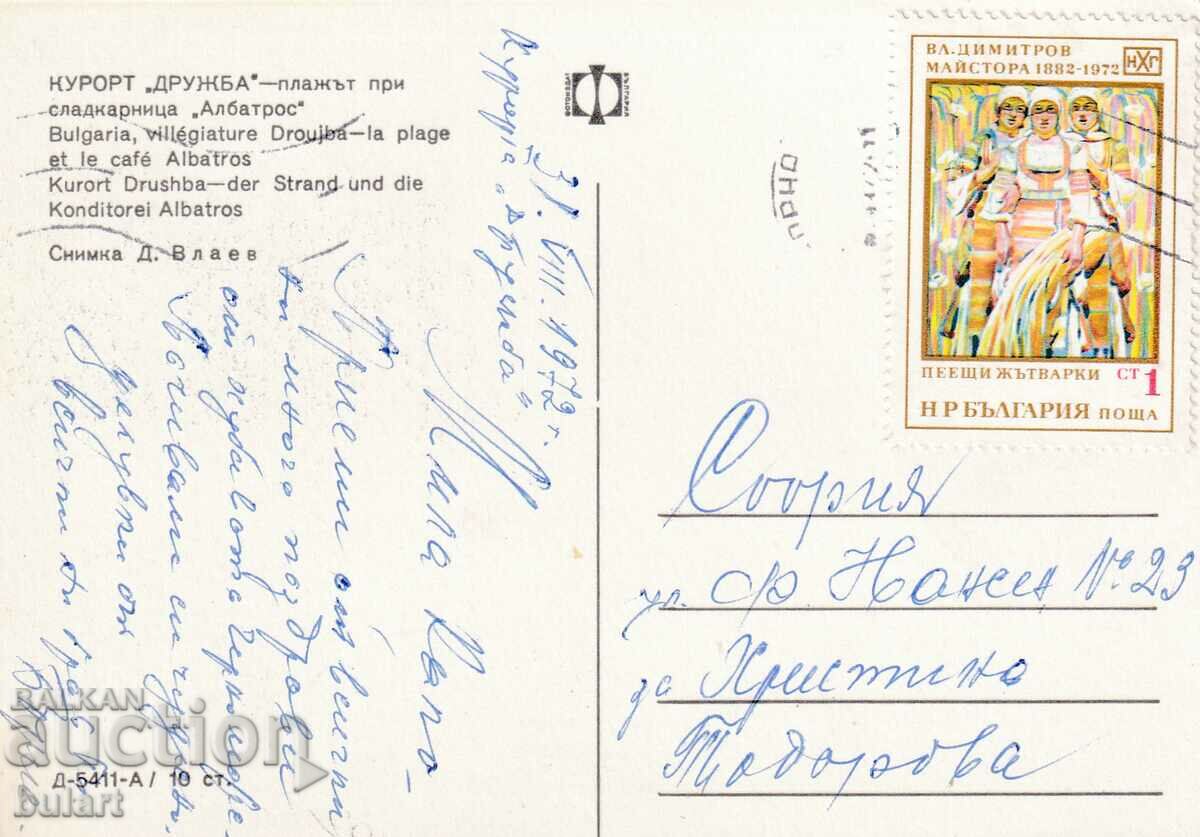 КУРОРТ „ДРУЖБА“—плажът при
сладкарница „Албатрос“
Bulgaria, villégiature Droujba—la plage
et le café Albatros
Kurort Drushba—der Strand und die
Konditorei Albatros
Снимка Д. Влаев
ФОТОИЗДАТ
БЪЛГАРИЯ
ВЛ.ДИМИТРОВ
МАЙСТОРА 1882-1972
НХГ
ПЕЕЩИ ЖЪТВАРКИ СТ 1
НР БЪЛГАРИЯ ПОЩА
31.VIII.1972 г.
Мила
Приеми от всички
ни много поздрави
от хубавото Черноморие.
Почиваме си чудесно.
Целувки от
всички
София
ул. Ф. Нансен № 23
да Христина
Тодорова
Д-5411-А / 10 ст.
BALKAN
auction
bulart